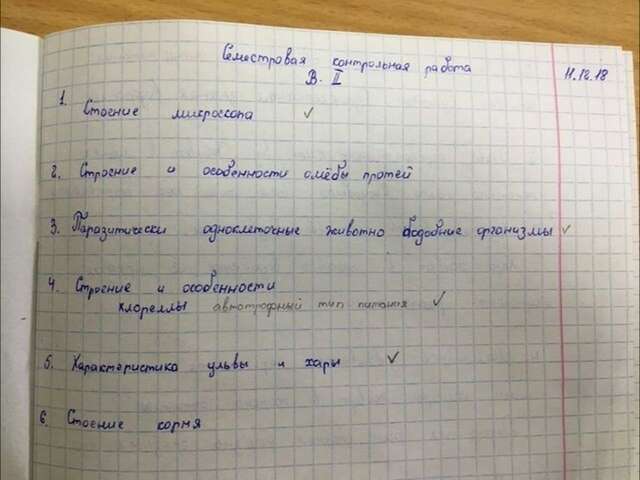 Семестровая контрольная работа 11.12.18
В. II
1. Стоение микроскопа ✓
2. Строение и особенности амёбы протей
3. Паразитически одноклеточные животно подобние организмы ✓
4. Строение и особенности
хлореллы автотрофный тип питания ✓
5. Характеристика ульвы и хары ✓
6. Стоение корня